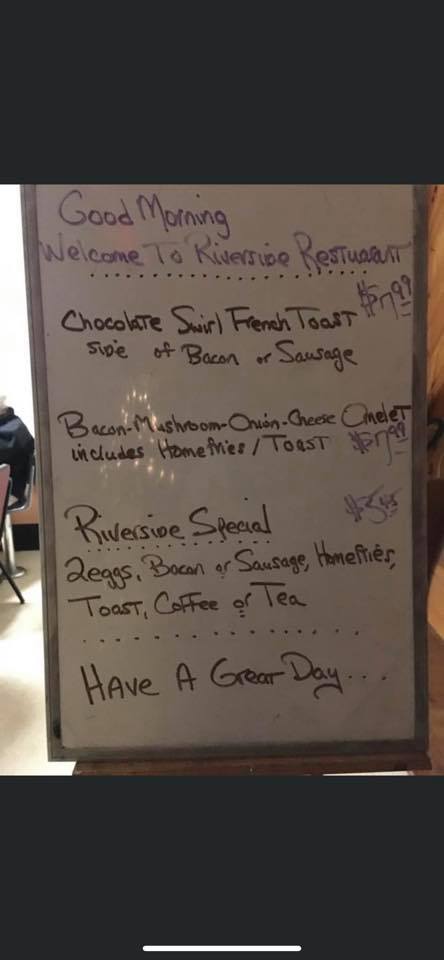 Good Morning
Welcome To Riverside Restuarant
Chocolate Swirl French Toast $7.99
side of Bacon or Sausage
Bacon-Mushroom-Onion-Cheese Omelet
includes Homefries / Toast $7.99
Riverside Special
2eggs, Bacon or Sausage, Homefries,
Toast, Coffee or Tea
Have A Great Day...